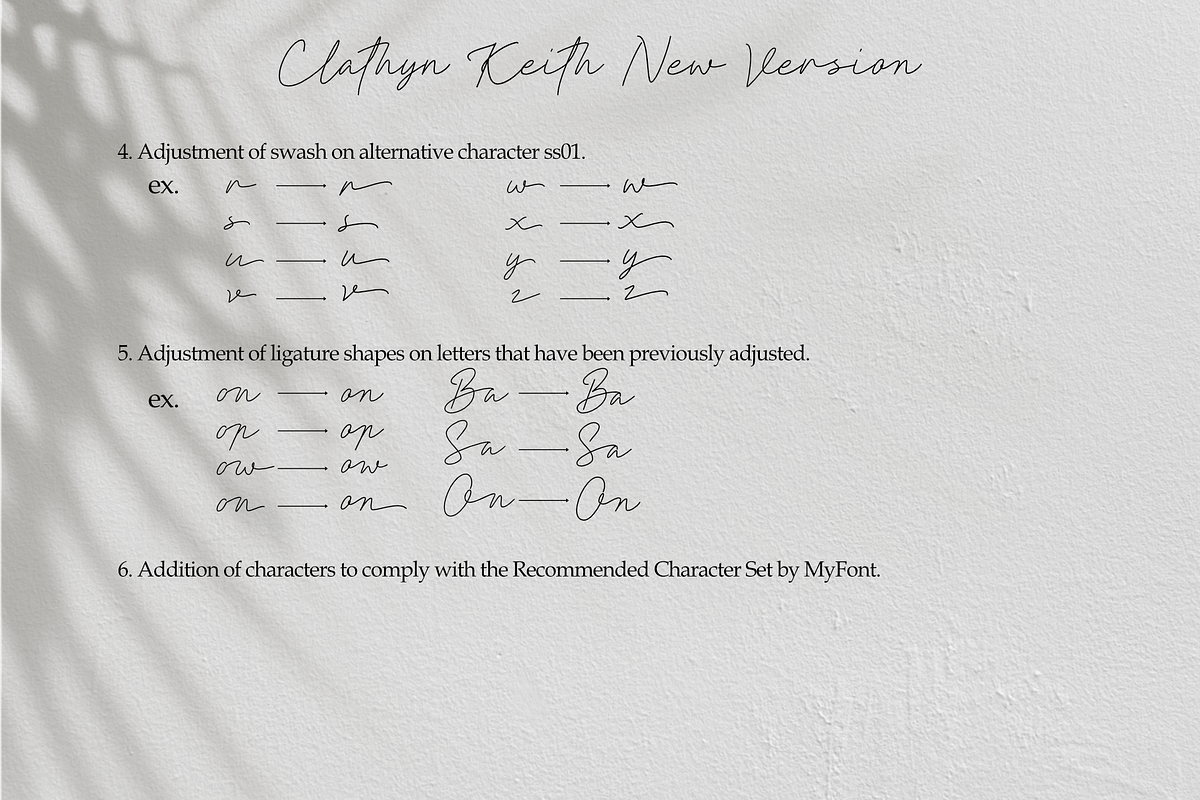 Clathyn Keith New Version
4. Adjustment of swash on alternative character ss01.
ex. r r w w
s s x x
u u y y
v v z z
5. Adjustment of ligature shapes on letters that have been previously adjusted.
ex. on on Ba Ba
op op Sa Sa
ow ow
on on On On
6. Addition of characters to comply with the Recommended Character Set by MyFont.